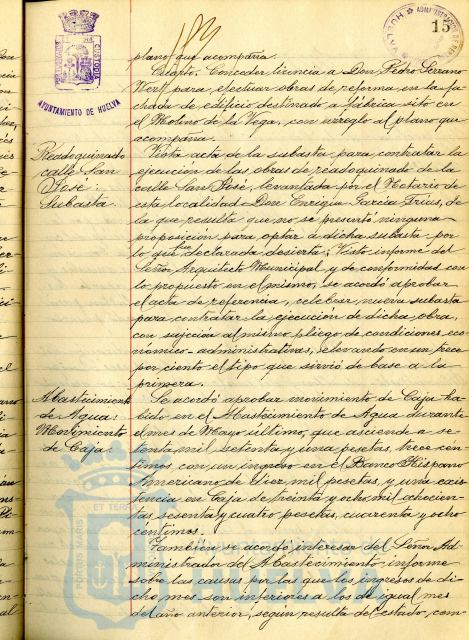 193
15
AYUNTAMIENTO DE HUELVA
plano que acompaña.
Conceder licencia a Don Pedro Serrano
para efectuar obras de reforma en la fa-
chada de edificio destinado a fábrica sito en
el Molino de la Vega, con arreglo al plano que
acompaña.
Readoquinado
calle San
José.
Subasta.
Vista acta de la subasta para contratar la
ejecución de las obras de readoquinado de la
calle San José, levantada por el Notario de
esta localidad Don Enrique García
de la que resulta que no se presentó ninguna
proposición para optar a dicha subasta por
lo que fue declarada desierta; Visto informe del
Señor Arquitecto Municipal y de conformidad con
lo propuesto en el mismo, se acordó aprobar
el acta de referencia, celebrar nueva subasta
para contratar la ejecución de dicha obra,
con sujeción al mismo pliego de condiciones eco-
nómico-administrativas, elevando en un trece
por ciento el tipo que sirvió de base a la
primera.
Abastecimiento
de Agua:
Movimiento
de Caja.
Se acordó aprobar movimiento de Caja ha-
bido en el Abastecimiento de Agua durante
el mes de Mayo último, que asciende a se-
tenta mil setenta y una pesetas, trece cén-
timos, con un ingreso en el Banco Hispano
Americano de diez mil pesetas, y una exis-
tencia en Caja de treinta y ocho mil ochocien-
tas sesenta y cuatro pesetas, cuarenta y ocho
céntimos.
También se acordó interesar del Señor Ad-
ministrador del Abastecimiento informe
sobre las causas por las que los ingresos de di-
cho mes son inferiores a los de igual mes
del año anterior, según resulta del estado, com-
PORTUS MARIS ET TERRAE